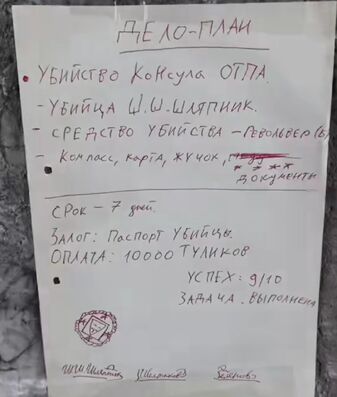 ДЕЛО-ПЛАН
• УБИЙСТВО КОНСУЛА ОТПА.
- УБИЙЦА Ш.Ш.ШЛЯПНИК.
- СРЕДСТВО УБИЙСТВА - РЕВОЛЬВЕР(Б)
- КОМПАСС, КАРТА, ЖУЧОК,
ДОКУМЕНТЫ
СРОК - 7 ДНЕЙ.
ЗАЛОГ: ПАСПОРТ УБИЙЦЫ.
ОПЛАТА: 10000 ТУЛИКОВ
УСПЕХ: 9/10
ЗАДАЧА. ВЫПОЛНЕНА